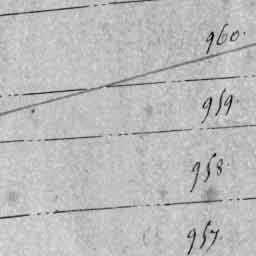 960.
959.
958.
957.